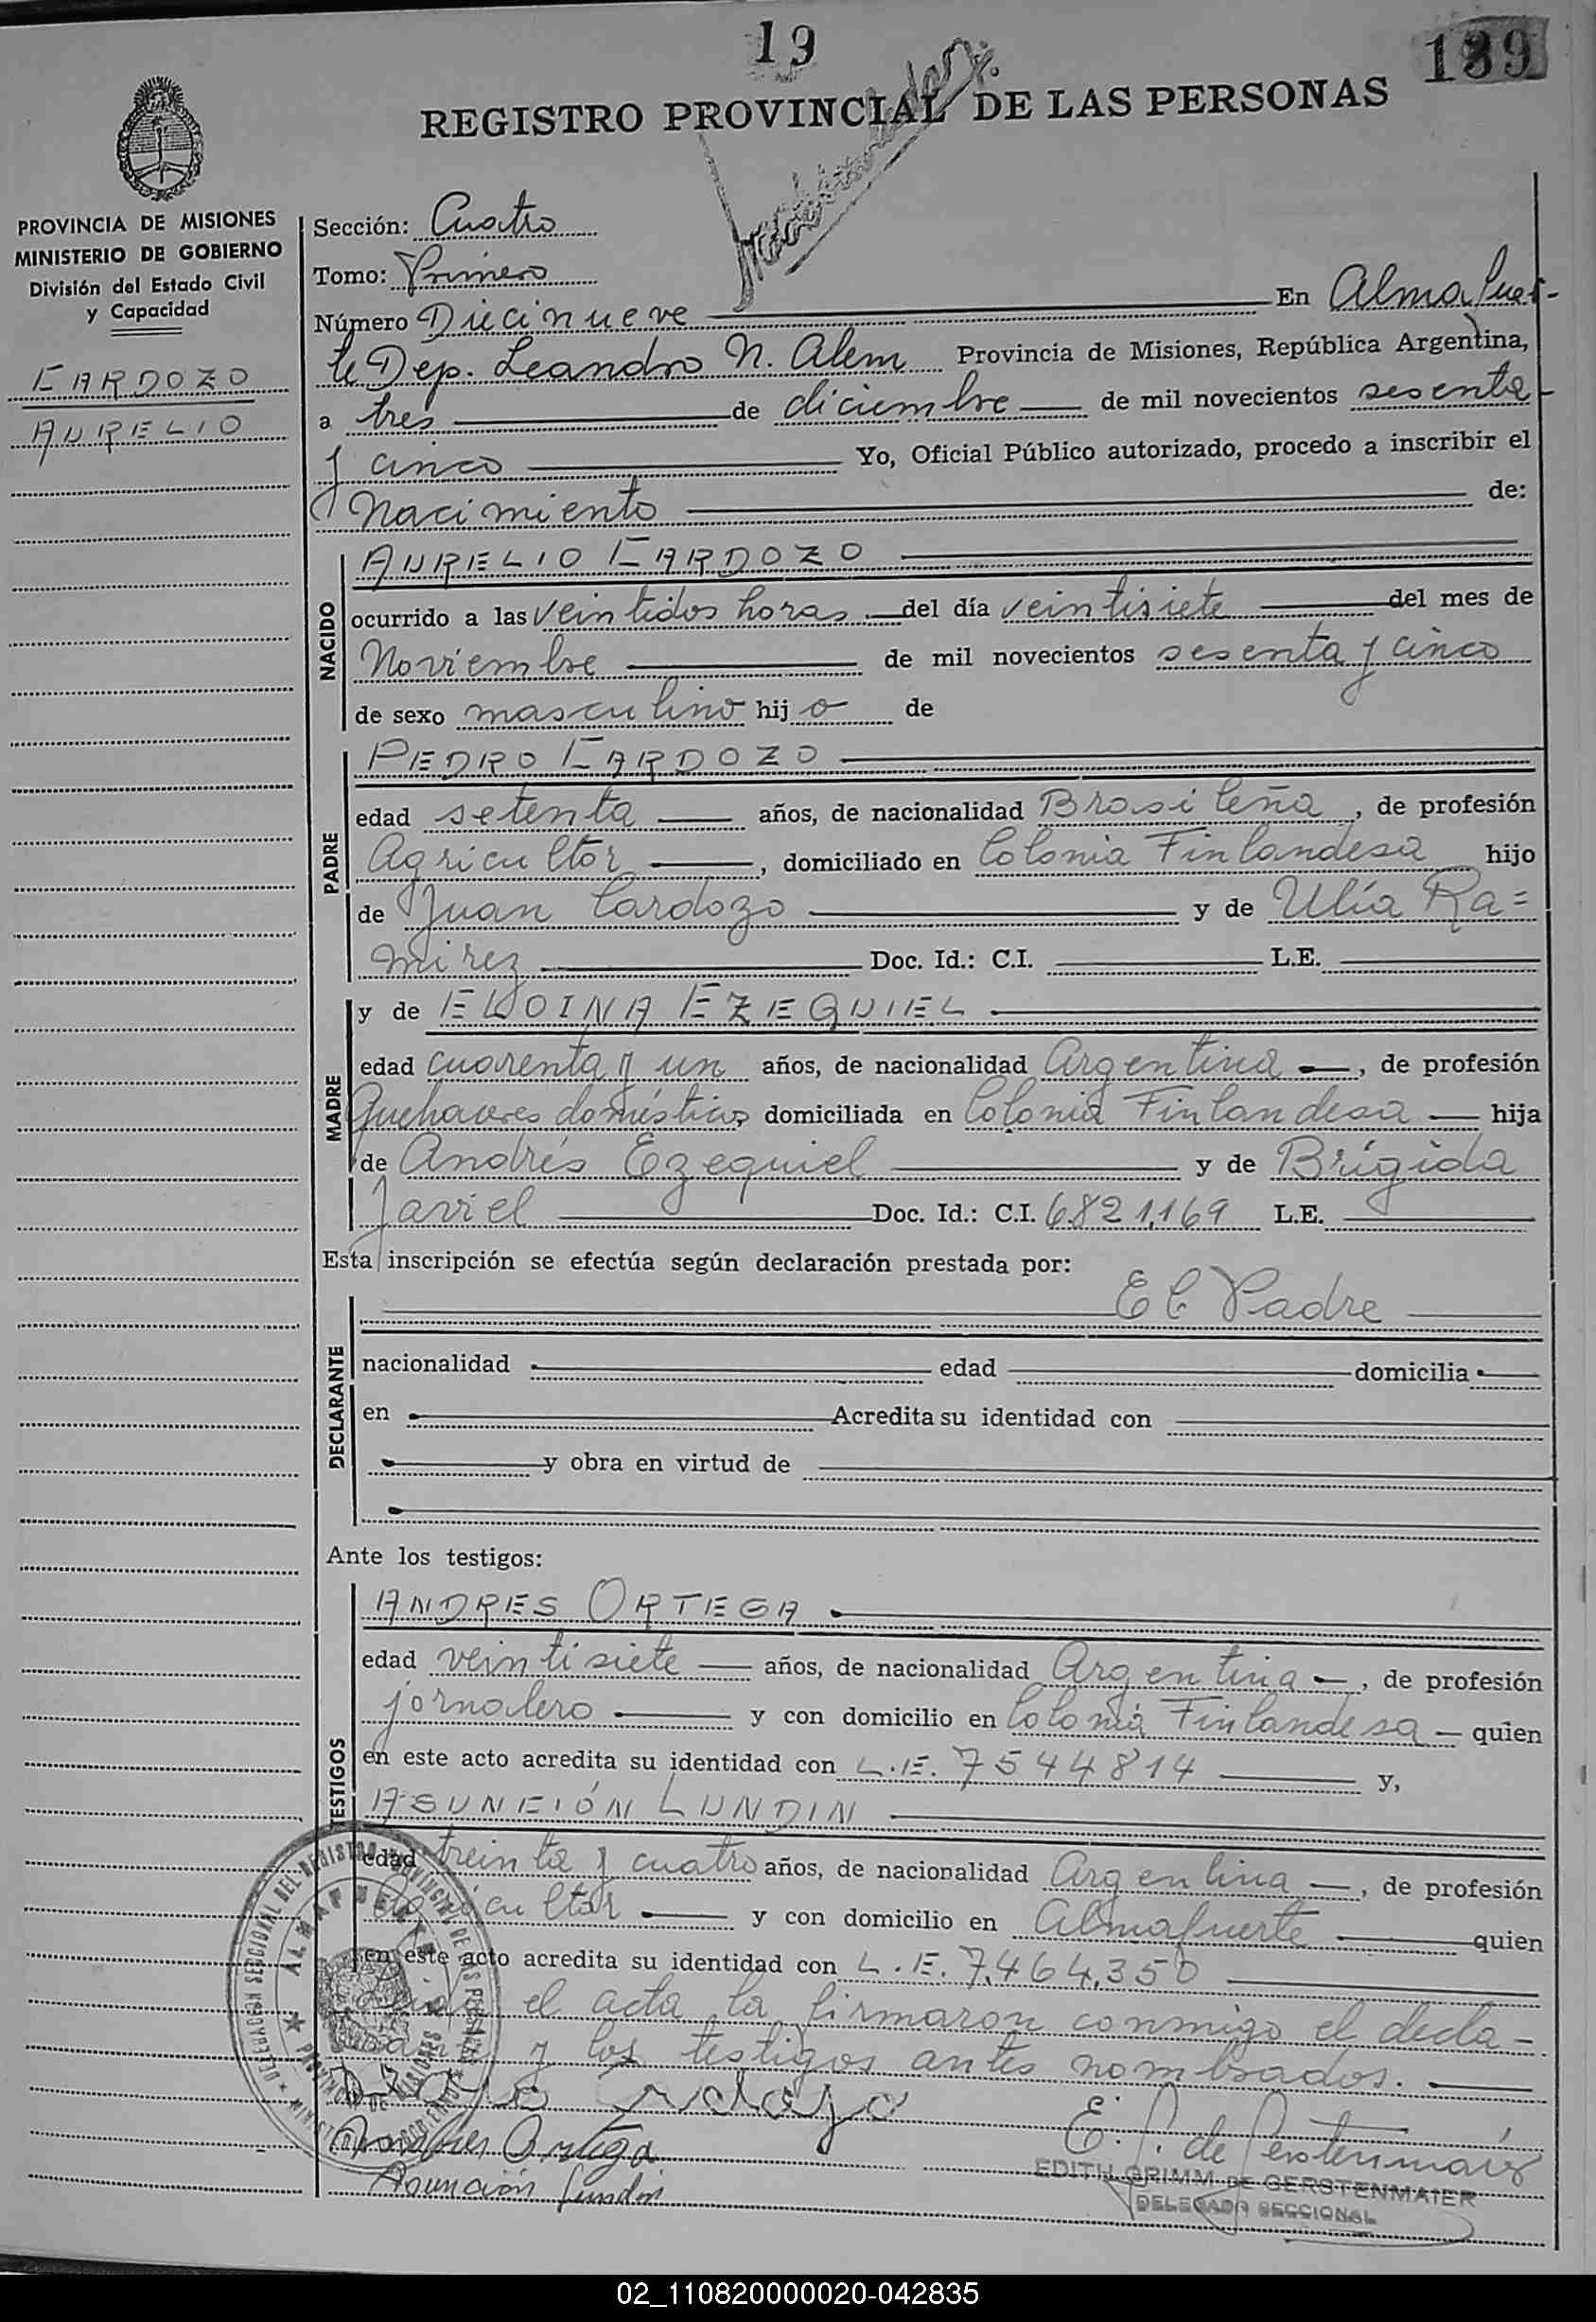 19
139
REGISTRO PROVINCIAL DE LAS PERSONAS
PROVINCIA DE MISIONES
MINISTERIO DE GOBIERNO
División del Estado Civil
y Capacidad
CARDOZO
AURELIO
Sección: Cuatro
Tomo: Primero
Número Diecinueve En Almafuer-
te Dep. Leandro N. Alem Provincia de Misiones, República Argentina,
a tres de diciembre de mil novecientos sesenta
y cinco Yo, Oficial Público autorizado, procedo a inscribir el
Nacimiento de:
NACIDO
AURELIO CARDOZO
ocurrido a las veintidos horas del día veintisiete del mes de
Noviembre de mil novecientos sesenta y cinco
de sexo masculino hijo de
PADRE
PEDRO CARDOZO
edad setenta años, de nacionalidad Brasileña, de profesión
Agricultor, domiciliado en Colonia Finlandesa hijo
de Juan Cardozo y de Ulía Ra=
mirez Doc. Id.: C.I. L.E.
MADRE
y de ELOINA EZEQUIEL
edad cuarenta y un años, de nacionalidad Argentina, de profesión
Quehaceres domésticos domiciliada en Colonia Finlandesa hija
de Andrés Ezequiel y de Brígida
Javiel Doc. Id.: C.I. 6.821.169 L.E.
Esta inscripción se efectúa según declaración prestada por:
DECLARANTE
El Padre
nacionalidad edad domicilia
en Acredita su identidad con
y obra en virtud de
Ante los testigos:
TESTIGOS
ANDRES ORTEGA
edad veintisiete años, de nacionalidad Argentina, de profesión
jornalero y con domicilio en Colonia Finlandesa quien
en este acto acredita su identidad con L.E. 7544814 y,
ASUNCIÓN LUNDIN
edad treinta y cuatro años, de nacionalidad Argentina, de profesión
Agricultor y con domicilio en Almafuerte quien
en este acto acredita su identidad con L.E. 7.464.350
Leida el acta la firmaron conmigo el decla-
rante y los testigos antes nombrados.
Andres Ortega
Asunción Lundin
E. G. de Gerstenmaier
EDITH GRIMM DE GERSTENMAIER
DELEGADA SECCIONAL
02_110820000020-042835